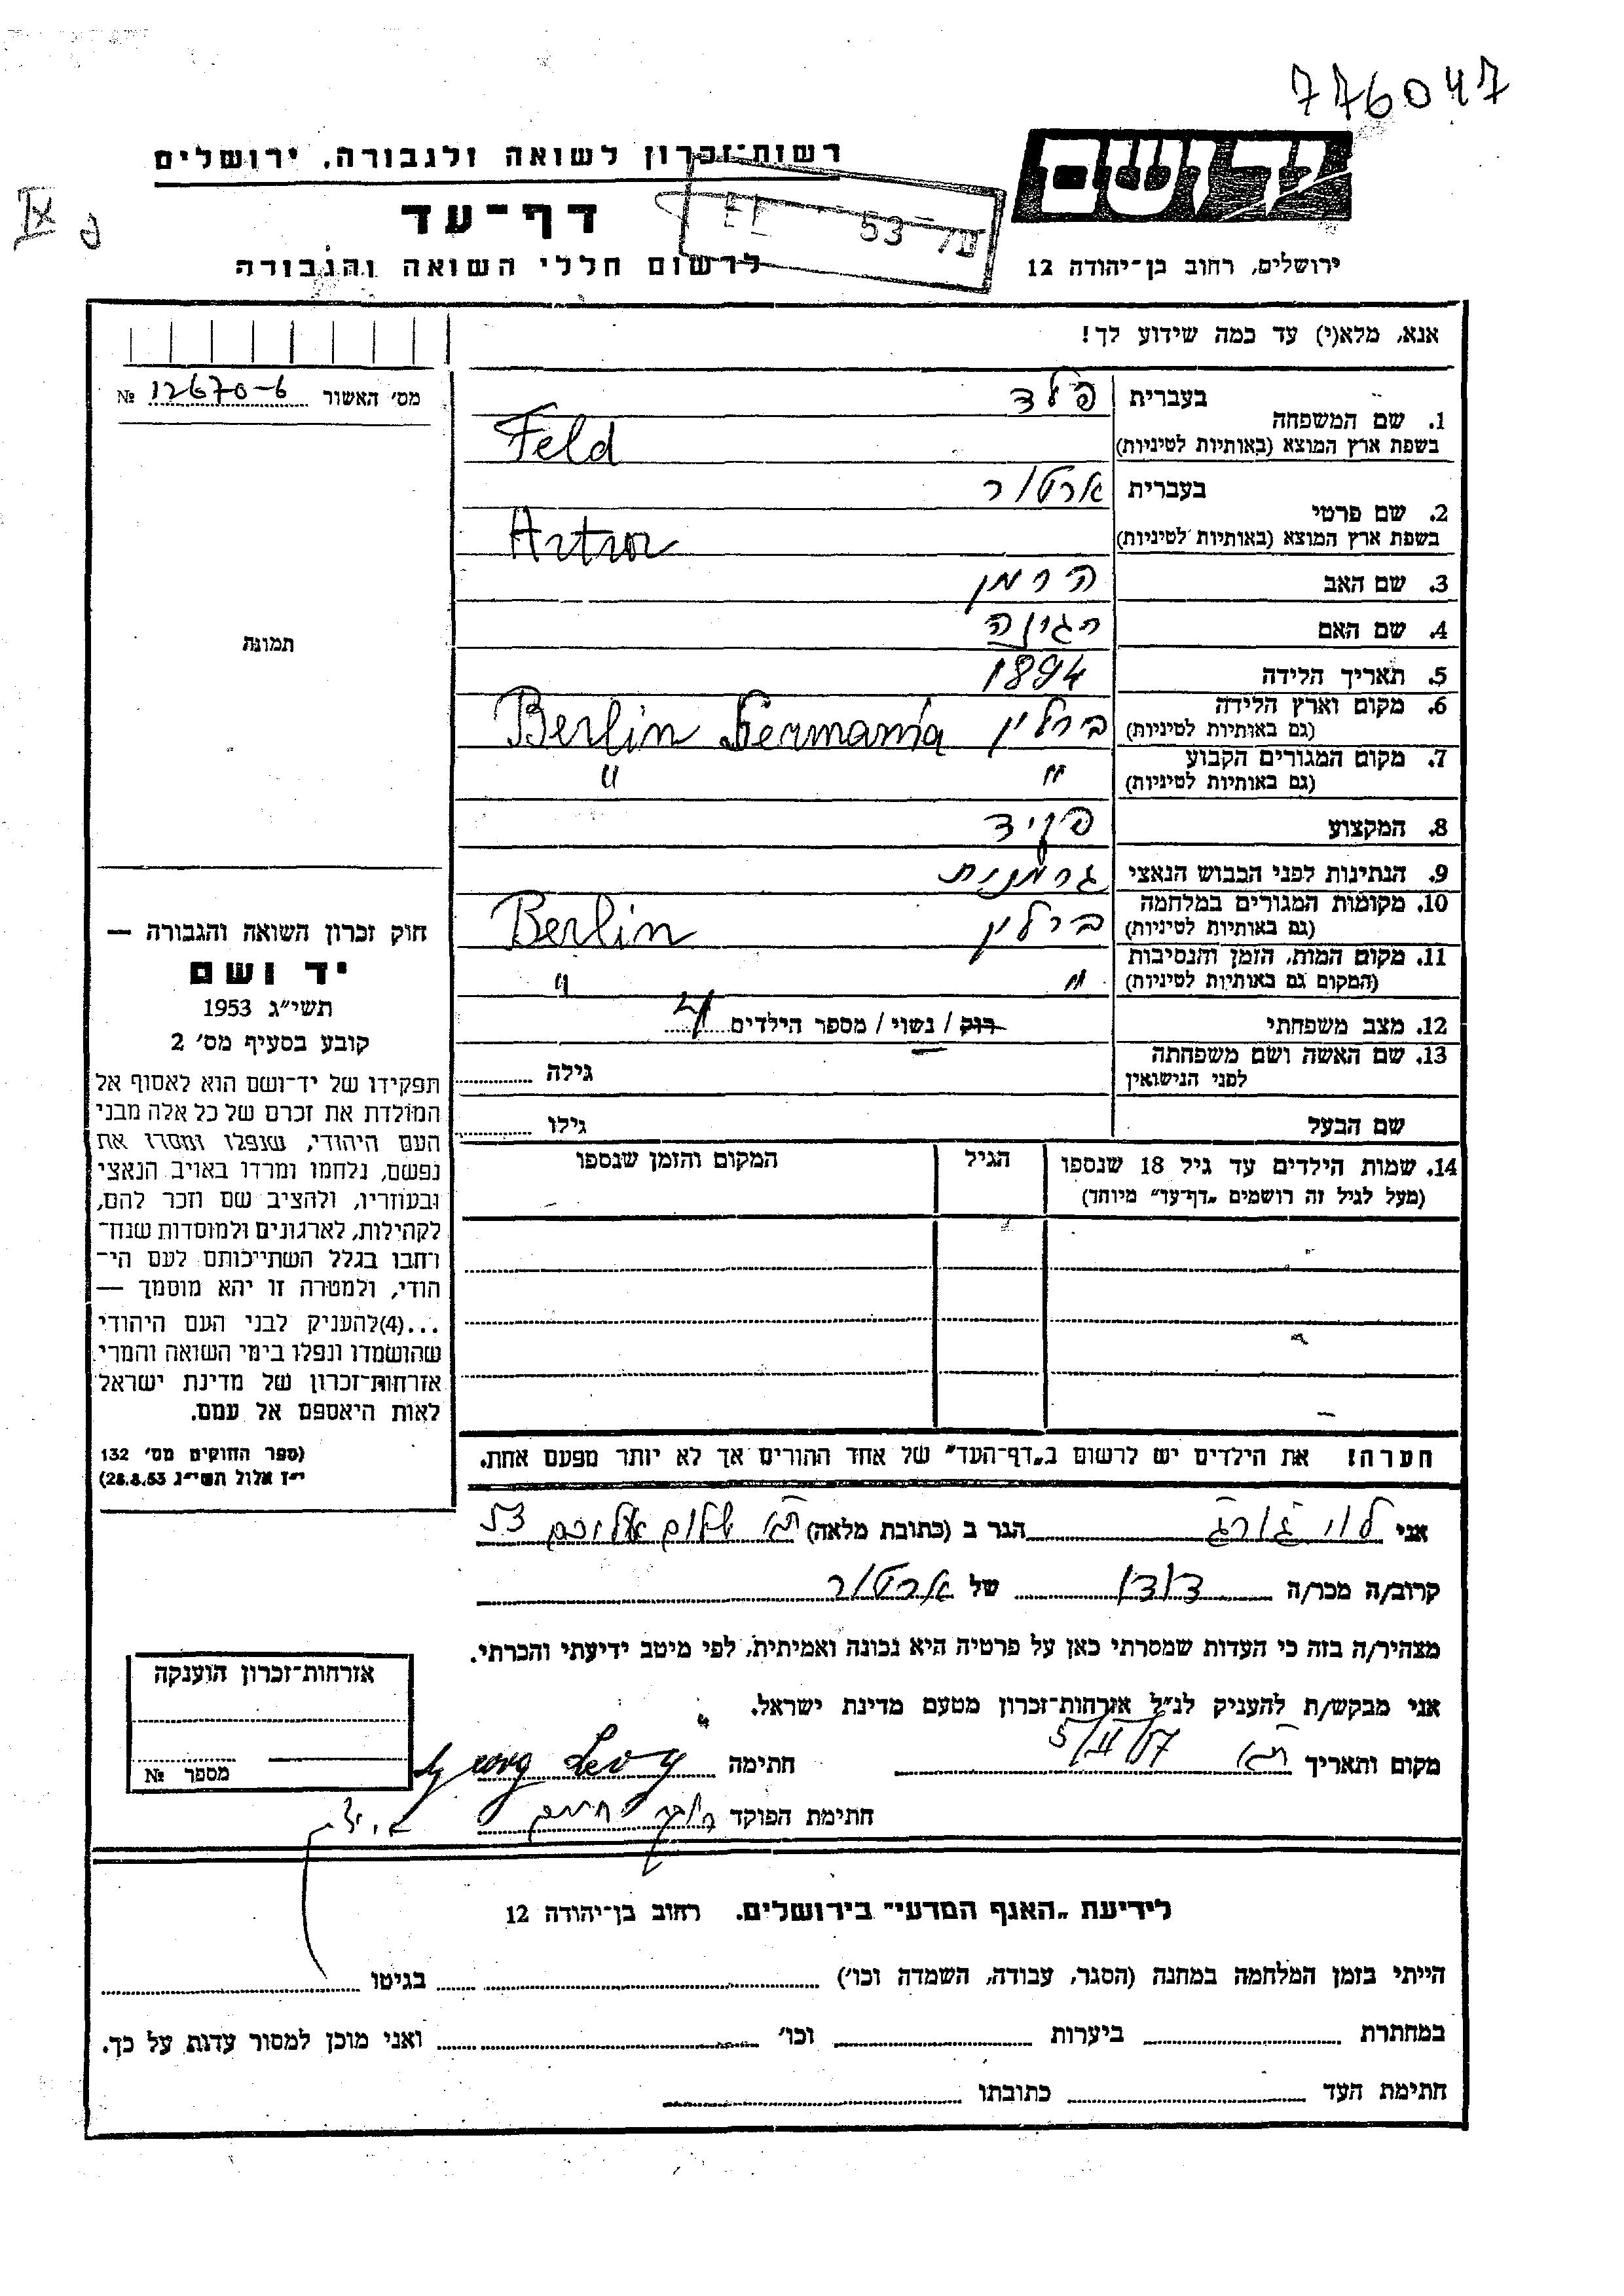 776047
רשות־זכרון לשואה ולגבורה, ירושלים
יד ושם
דף־עד
IX
53
לרשום חללי השואה והגבורה
ירושלים, רחוב בן־יהודה 12
אנא, מלא(י) עד כמה שידוע לך!
מס׳ האשור 12670-6 №
1. שם המשפחה
בעברית פלד
בשפת ארץ המוצא (באותיות לטיניות) Feld
2. שם פרטי
בעברית ארטור
בשפת ארץ המוצא (באותיות לטיניות) Artur
3. שם האב הרמן
4. שם האם רגינה
5. תאריך הלידה 1894
6. מקום וארץ הלידה ברלין Berlin Germania
(גם באותיות לטיניות)
7. מקום המגורים הקבוע " "
(גם באותיות לטיניות)
8. המקצוע פקיד
9. הנתינות לפני הכבוש הנאצי גרמנית
10. מקומות המגורים במלחמה ברלין Berlin
(גם באותיות לטיניות)
11. מקום המות, הזמן והנסיבות " "
(המקום גם באותיות לטיניות)
12. מצב משפחתי רוק / נשוי / מספר הילדים
13. שם האשה ושם משפחתה גילה
לפני הנישואין
שם הבעל גילו
14. שמות הילדים עד גיל 18 שנספו הגיל המקום והזמן שנספו
(מעל לגיל זה רושמים „דף־עד״ מיוחד)
תמונה
חוק זכרון השואה והגבורה —
יד ושם
תשי״ג 1953
קובע בסעיף מס׳ 2
תפקידו של יד־ושם הוא לאסוף אל
המולדת את זכרם של כל אלה מבני
העם היהודי, שנפלו ומסרו את
נפשם, נלחמו ומרדו באויב הנאצי
ובעוזריו, ולהציב שם וזכר להם,
לקהילות, לארגונים ולמוסדות שנח־
רחבו בגלל השתייכותם לעם הי־
הודי, ולמטרה זו יהא מוסמך —
...(4)להעניק לבני העם היהודי
שהושמדו ונפלו בימי השואה והמרי
אזרחות־זכרון של מדינת ישראל
לאות היאספם אל עמם.
(ספר החוקים מס׳ 132
י״ז אלול תשי״ג 28.8.53)
הערה! את הילדים יש לרשום ב„דף־העד״ של אחד ההורים אך לא יותר מפעם אחת.
אני לוי גורג הגר ב (כתובת מלאה) ת"א שלום עליכם 53
קרוב/ה מכר/ה דודן של ארטור
מצהיר/ה בזה כי העדות שמסרתי כאן על פרטיה היא נכונה ואמיתית, לפי מיטב ידיעתי והכרתי.
אני מבקש/ת להעניק לנ״ל אזרחות־זכרון מטעם מדינת ישראל.
מקום ותאריך ת"א 5/II/57 חתימה Georg Levy
חתימת הפוקד
אזרחות־זכרון הוענקה
מספר №
לידיעת „האגף המדעי״ בירושלים. רחוב בן־יהודה 12
הייתי בזמן המלחמה במחנה (הסגר, עבודה, השמדה וכו׳) בגיטו
במחתרת ביערות וכו׳ ואני מוכן למסור עדות על כך.
חתימת העד כתובתו